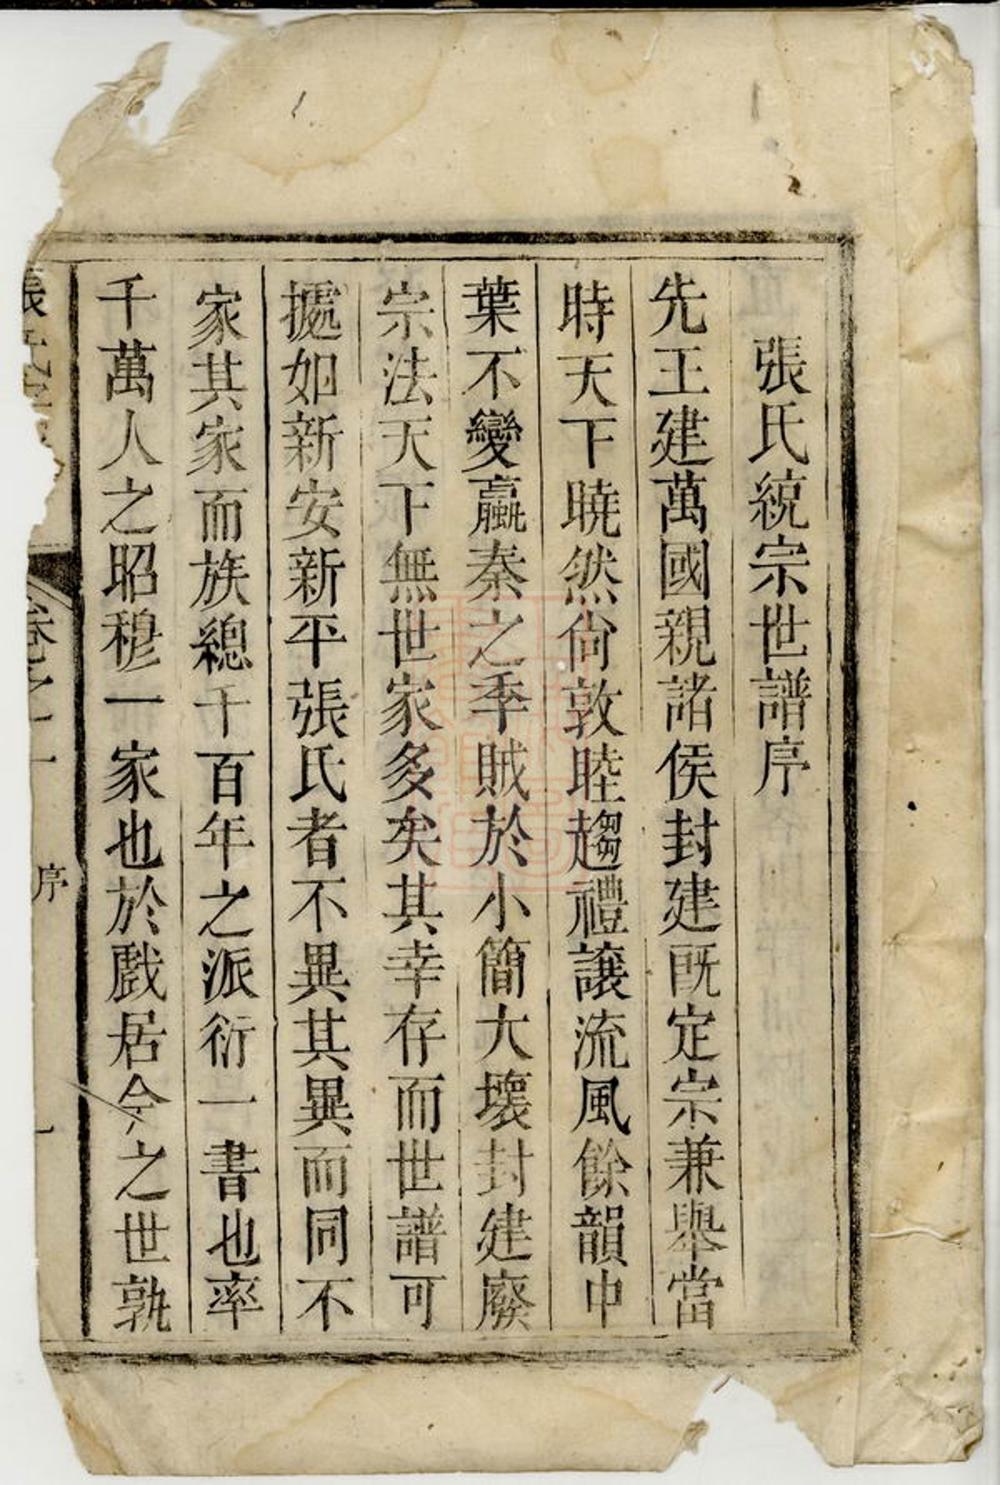 張氏統宗世譜序
先王建萬國親諸侯封建旣定宗兼舉當
時天下曉然尙敦睦趨禮讓流風餘韻中
葉不變嬴秦之季賊於小簡大壞封建廢
宗法天下無世家多矣其幸存而世譜可
據如新安新平張氏者不異其異而同不
家其家而族總千百年之派衍一書也率
千萬人之昭穆一家也於戲居今之世孰
張氏
卷之一 序 一